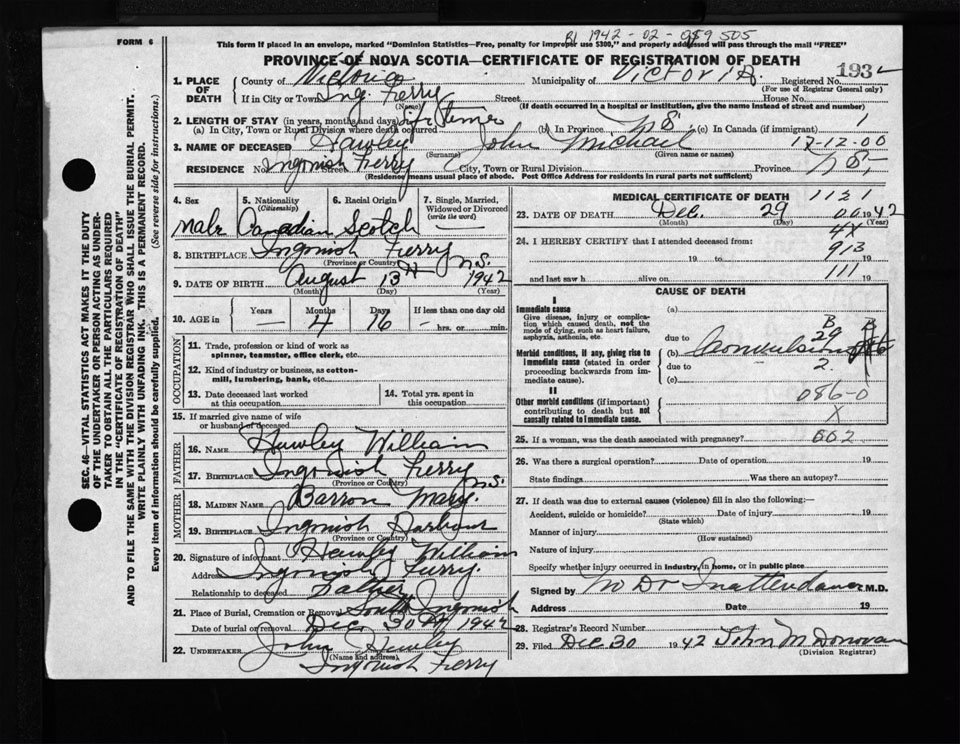 FORM 6
1942-02-089505
This form if placed in an envelope, marked "Dominion Statistics—Free, penalty for improper use $300," and properly addressed will pass through the mail "FREE"
PROVINCE OF NOVA SCOTIA—CERTIFICATE OF REGISTRATION OF DEATH
SEC. 46—VITAL STATISTICS ACT MAKES IT THE DUTY
OF THE UNDERTAKER OR PERSON ACTING AS UNDER-
TAKER TO OBTAIN ALL THE PARTICULARS REQUIRED
IN THE "CERTIFICATE OF REGISTRATION OF DEATH"
AND TO FILE THE SAME WITH THE DIVISION REGISTRAR WHO SHALL ISSUE THE BURIAL PERMIT.
WRITE PLAINLY WITH UNFADING INK. THIS IS A PERMANENT RECORD.
Every item of information should be carefully supplied. (See reverse side for instructions.)
1. PLACE OF DEATH
County of Victoria Municipality of Victoria Registered No. 193
(For use of Registrar General only)
If in City or Town Ing. Ferry Street House No.
(Name) (If death occurred in a hospital or institution, give the name instead of street and number)
2. LENGTH OF STAY (in years, months and days) Life time
(a) In City, Town or Rural Division where death occurred (b) In Province N S. (c) In Canada (if immigrant) 1
3. NAME OF DECEASED Hawley John Michael 12-12-00
(Surname) (Given name or names)
RESIDENCE No. Street Ingonish Ferry City, Town or Rural Division Province N S.
(Residence means usual place of abode. Post Office Address for residents in rural parts not sufficient)
4. Sex
male
5. Nationality
(Citizenship)
Canadian
6. Racial Origin
Scotch
7. Single, Married,
Widowed or Divorced
(write the word)
—
8. BIRTHPLACE Ingonish Ferry N.S.
(Province or Country)
9. DATE OF BIRTH August 13th 1942
(Month) (Day) (Year)
10. AGE in
Years —
Months 4
Days 16
If less than one day old
— hrs. or min.
OCCUPATION
11. Trade, profession or kind of work as
spinner, teamster, office clerk, etc.
12. Kind of industry or business, as cotton-
mill, lumbering, bank, etc.
13. Date deceased last worked
at this occupation
14. Total yrs. spent in
this occupation
15. If married give name of wife
or husband of deceased
FATHER
16. NAME Hawley William
17. BIRTHPLACE Ingonish Ferry N.S.
(Province or Country)
MOTHER
18. MAIDEN NAME Barron Mary.
19. BIRTHPLACE Ingonish Harbour
(Province or Country)
20. Signature of informant Hawley William
Address Ingonish Ferry.
Relationship to deceased Father
21. Place of Burial, Cremation or Removal South Ingonish
Date of burial or removal Dec. 30 1942
22. UNDERTAKER John Hawley
(Name and address)
Ingonish Ferry
MEDICAL CERTIFICATE OF DEATH 1121
23. DATE OF DEATH Dec. 29 1942
(Month) (Day) (Year)
4X
24. I HEREBY CERTIFY that I attended deceased from:
913
19 to 19
and last saw h alive on 111 19
CAUSE OF DEATH
I
Immediate cause
Give disease, injury or complica-
tion which caused death, not the
mode of dying, such as heart failure,
asphyxia, asthenia, etc.
Morbid conditions, if any, giving rise to
immediate cause (stated in order
proceeding backwards from im-
mediate cause).
II
Other morbid conditions (if important)
contributing to death but not
causally related to immediate cause.
(a)
due to
B 29 B
(b) Convulsions
due to 2.
(c)
086-0
X
25. If a woman, was the death associated with pregnancy? 602
26. Was there a surgical operation? Date of operation 19
State findings Was there an autopsy?
27. If death was due to external causes (violence) fill in also the following:—
Accident, suicide or homicide? Date of injury 19
(State which)
Manner of injury
(How sustained)
Nature of injury
Specify whether injury occurred in industry, in home, or in public place
Signed by No Dr In attendance M.D.
Address Date 19
28. Registrar's Record Number
29. Filed Dec 30 1942 John M Donovan
(Division Registrar)